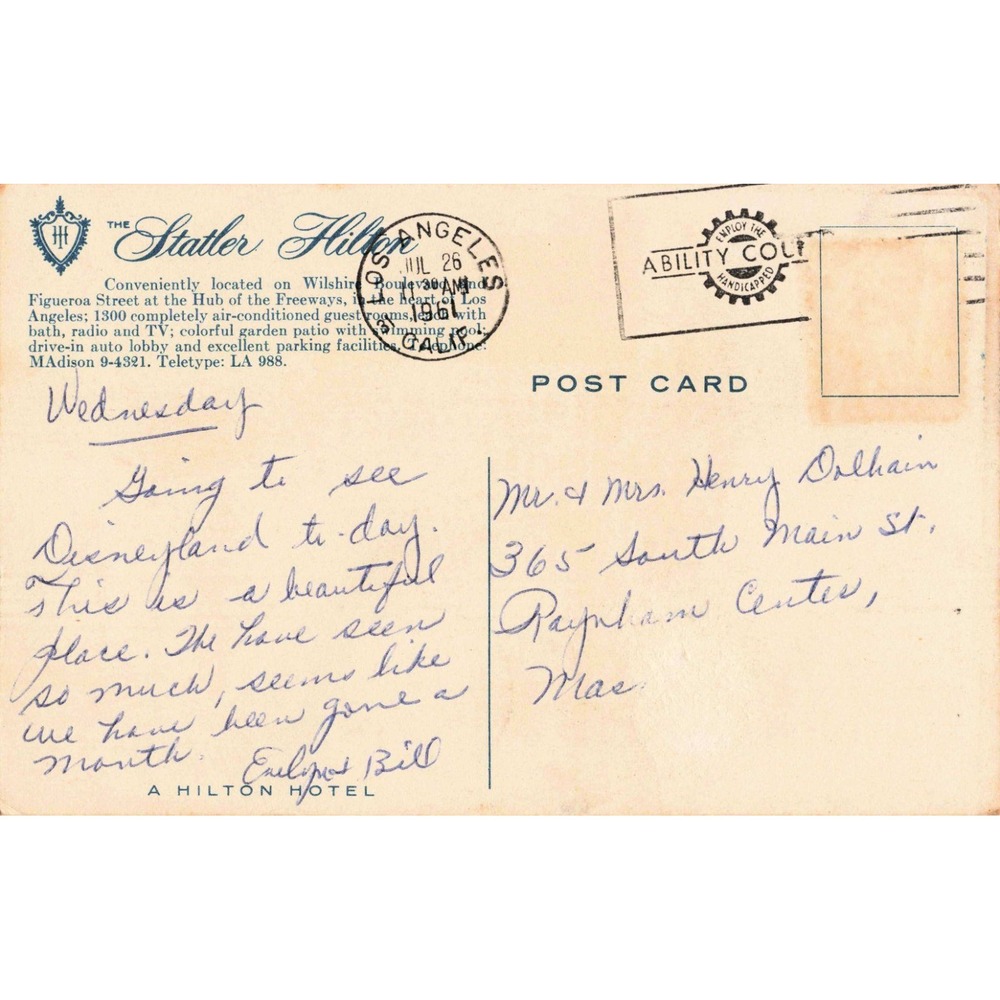 THE Statler Hilton
Conveniently located on Wilshire Boulevard and
Figueroa Street at the Hub of the Freeways, in the heart of Los
Angeles; 1300 completely air-conditioned guest rooms, each with
bath, radio and TV; colorful garden patio with swimming pool;
drive-in auto lobby and excellent parking facilities. Telephone:
MAdison 9-4321. Teletype: LA 988.
LOS ANGELES
JUL 26
11 30 AM
1961
3 CALIF.
EMPLOY THE
ABILITY COU
HANDICAPPED
POST CARD
Wednesday
Going to see
Disneyland to-day.
This is a beautiful
place. The have seen
so much, seems like
we have been gone a
month.
Evelyn & Bill
A HILTON HOTEL
Mr. & Mrs. Henry Dolhain
365 South Main St.
Raynham Center,
Mas